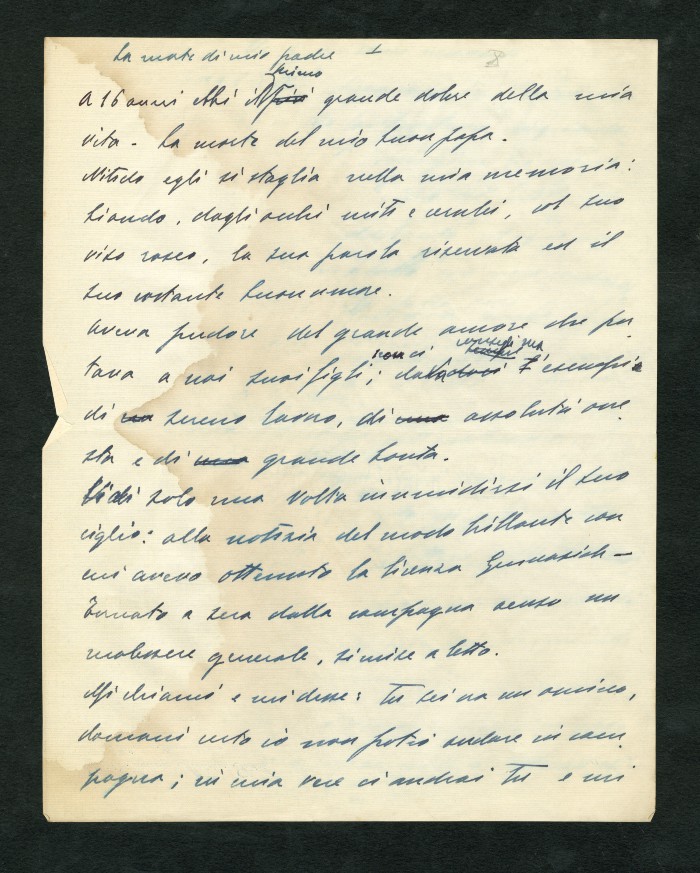 La morte di mio padre 1
primo
A 16 anni ebbi il più grande dolore della mia
vita - La morte del mio buon papà.
Nitido egli si staglia nella mia memoria:
biondo, dagli occhi miti e cerulei, col suo
viso roseo, la sua parola riservata ed il
suo costante buonumore.
Aveva pudore del grande amore che por
tava a noi suoi figli; l'esempio
di un sereno lavoro, di una assoluta one
stà e di una grande bontà.
Vidi solo una volta inumidirsi il suo
ciglio: alla notizia del modo brillante con
cui avevo ottenuto la licenza Ginnasiale -
Tornato a sera dalla campagna accusò un
malessere generale, si mise a letto.
Mi chiamò e mi disse: Tu sei ora un omino,
domani certo io non potrò andare in cam
pagna; in mia vece ci andrai tu e mi